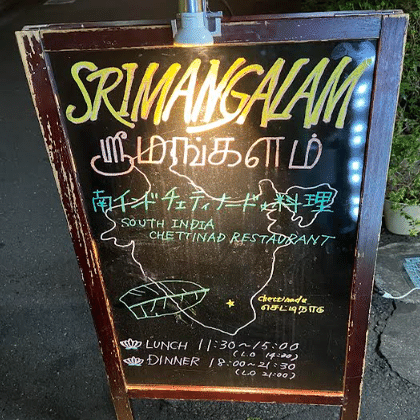 SRIMANGALAM
ஸ்ரீமங்களம்
南インドチェティナード料理
SOUTH INDIA
CHETTINAD RESTAURANT
chettinadu
செட்டிநாடு
LUNCH 11:30~15:00
(L.O 14:30)
DINNER 18:00~21:30
(L.O 21:00)